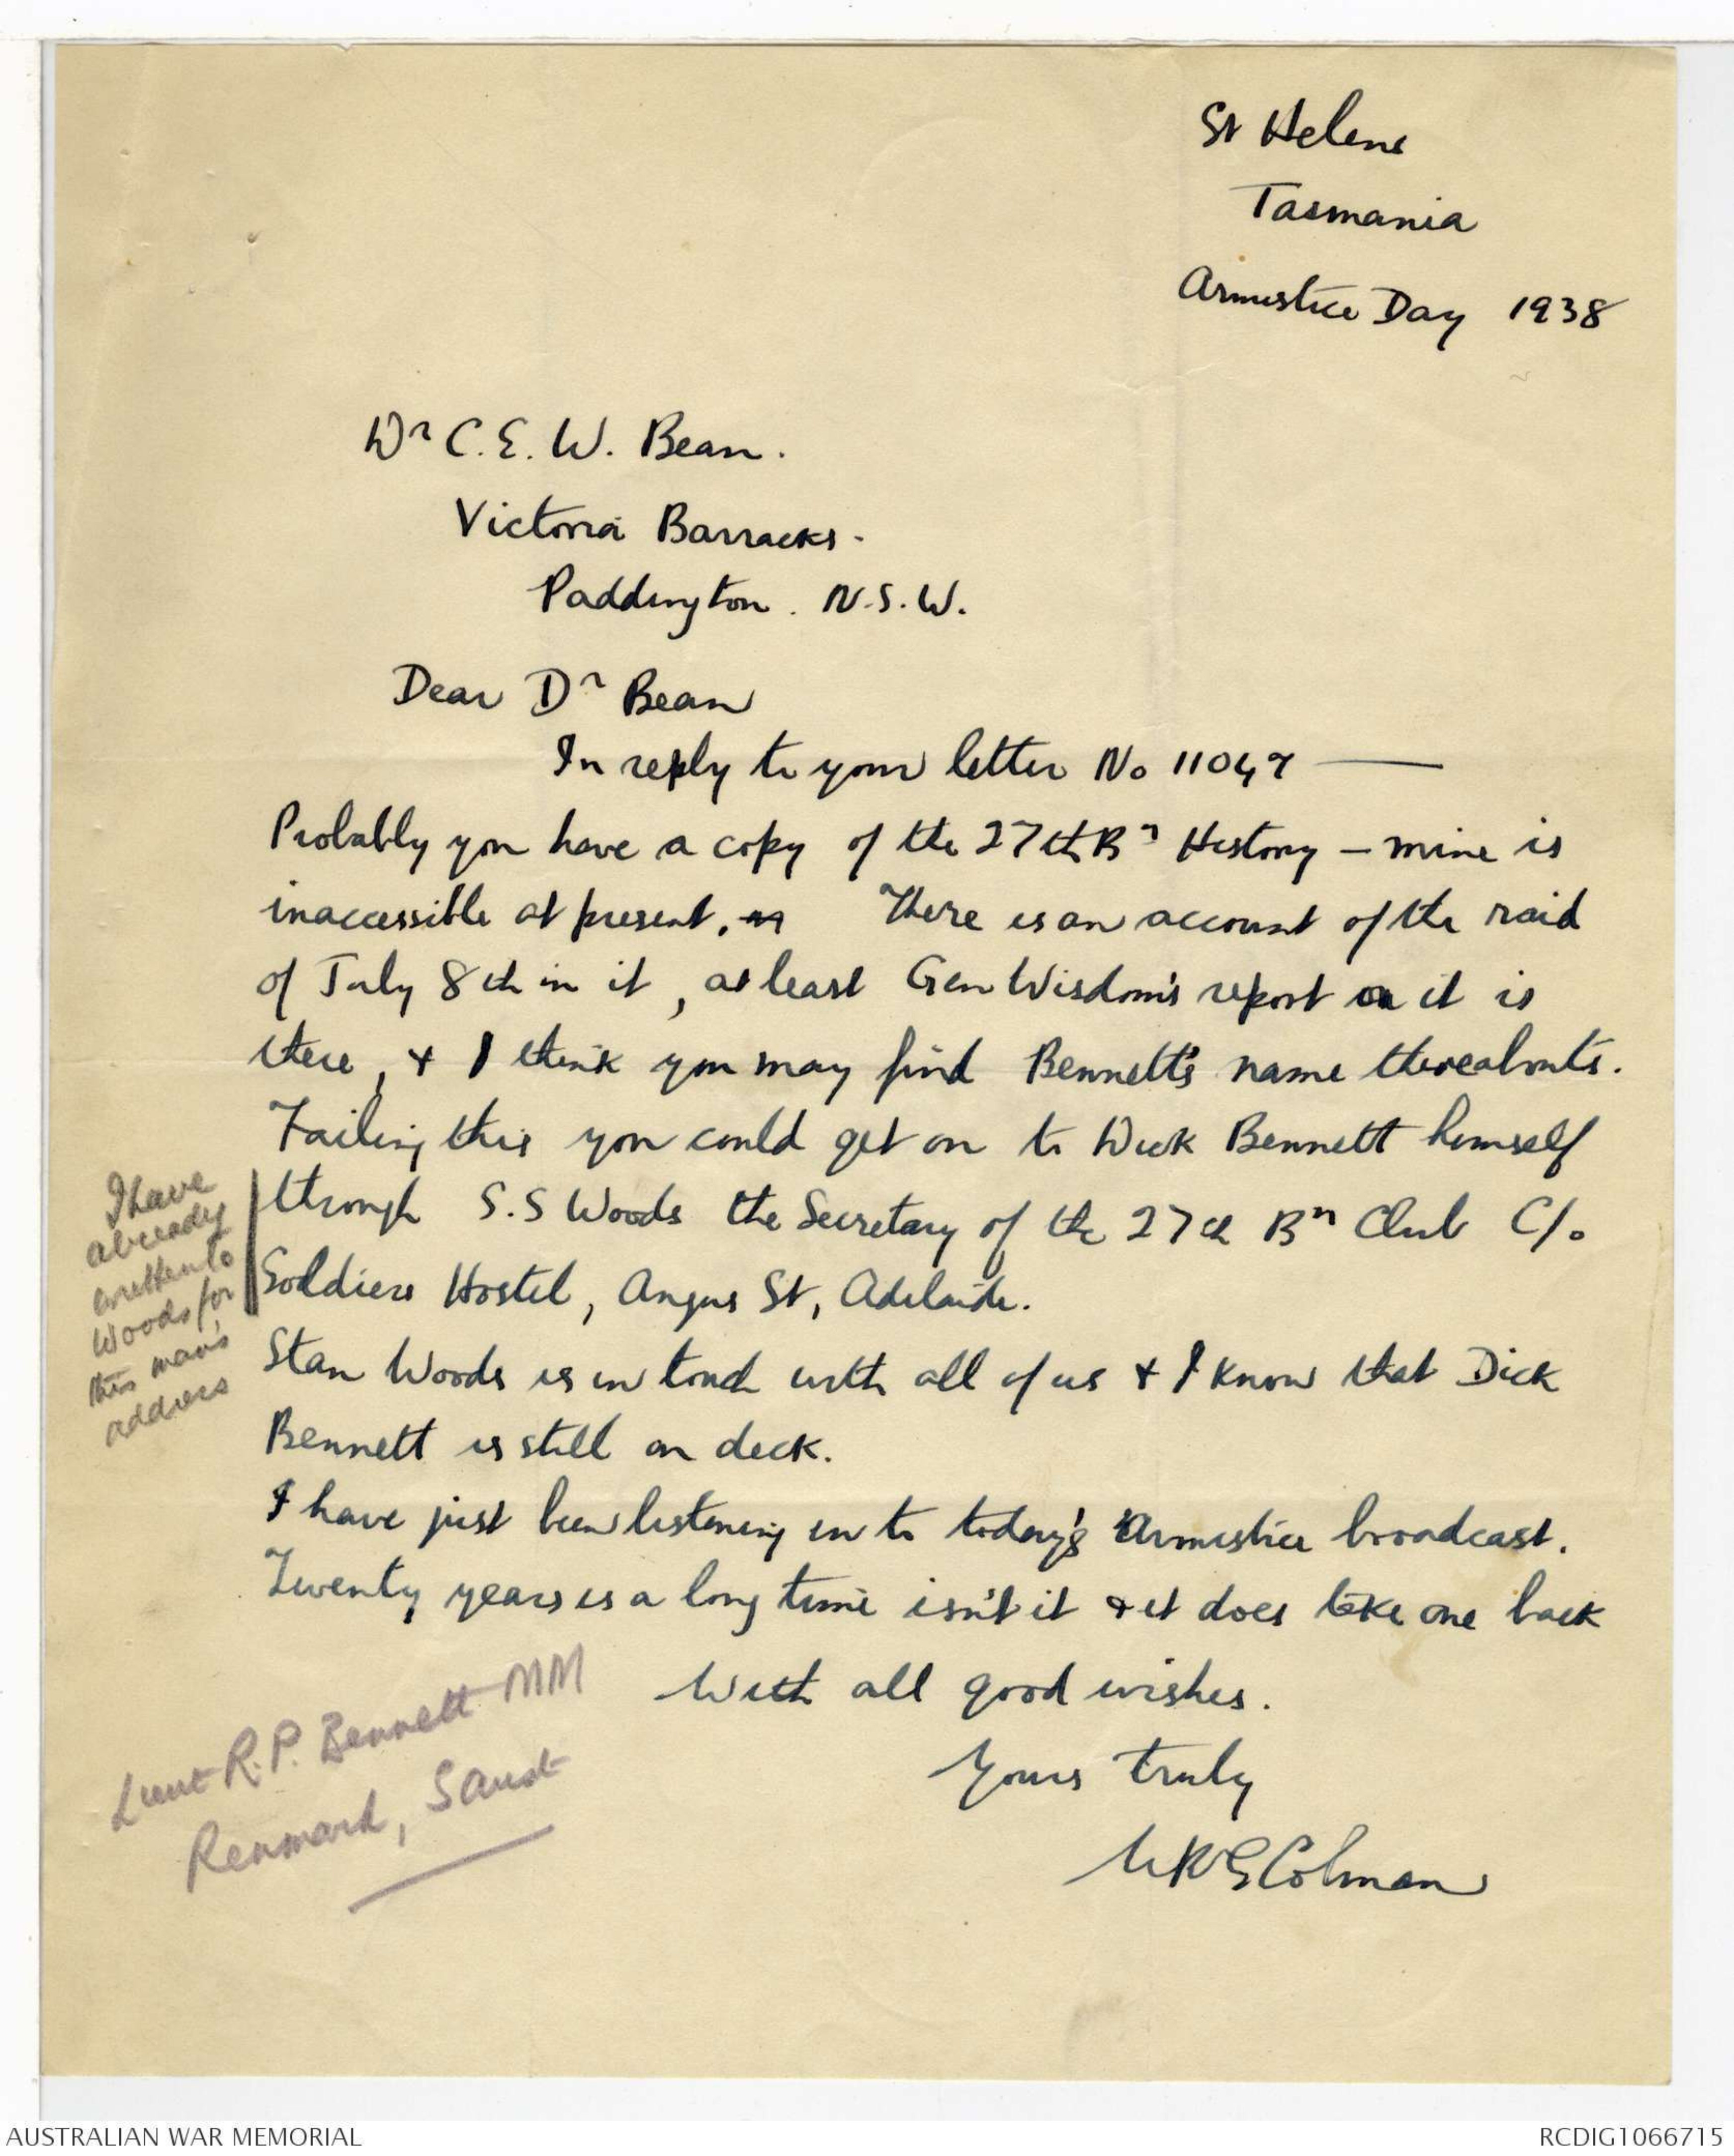 St Helens
Tasmania
Armistice Day 1938
Dr C. E. W. Bean.
Victoria Barracks.
Paddington. N.S.W.
Dear Dr Bean
In reply to your letter No 11047 —
Probably you have a copy of the 27th Bn History – mine is
inaccessible at present. There is an account of the raid
of July 8th in it, at least Gen Wisdom's report on it is
there, & I think you may find Bennett's name thereabouts.
Failing this you could get on to Dick Bennett himself
through S.S Woods the Secretary of the 27th Bn Club C/o
Soldiers Hostel, Angus St, Adelaide.
Stan Woods is in touch with all of us & I know that Dick
Bennett is still on deck.
I have just been listening in to today's Armistice broadcast.
Twenty years is a long time isn't it & it does take one back
With all good wishes.
Yours truly
Colman
I have
already
written to
Woods for
this man's
address
Lieut R.P. Bennett MM
Renmark, S Aust
AUSTRALIAN WAR MEMORIAL
RCDIG1066715